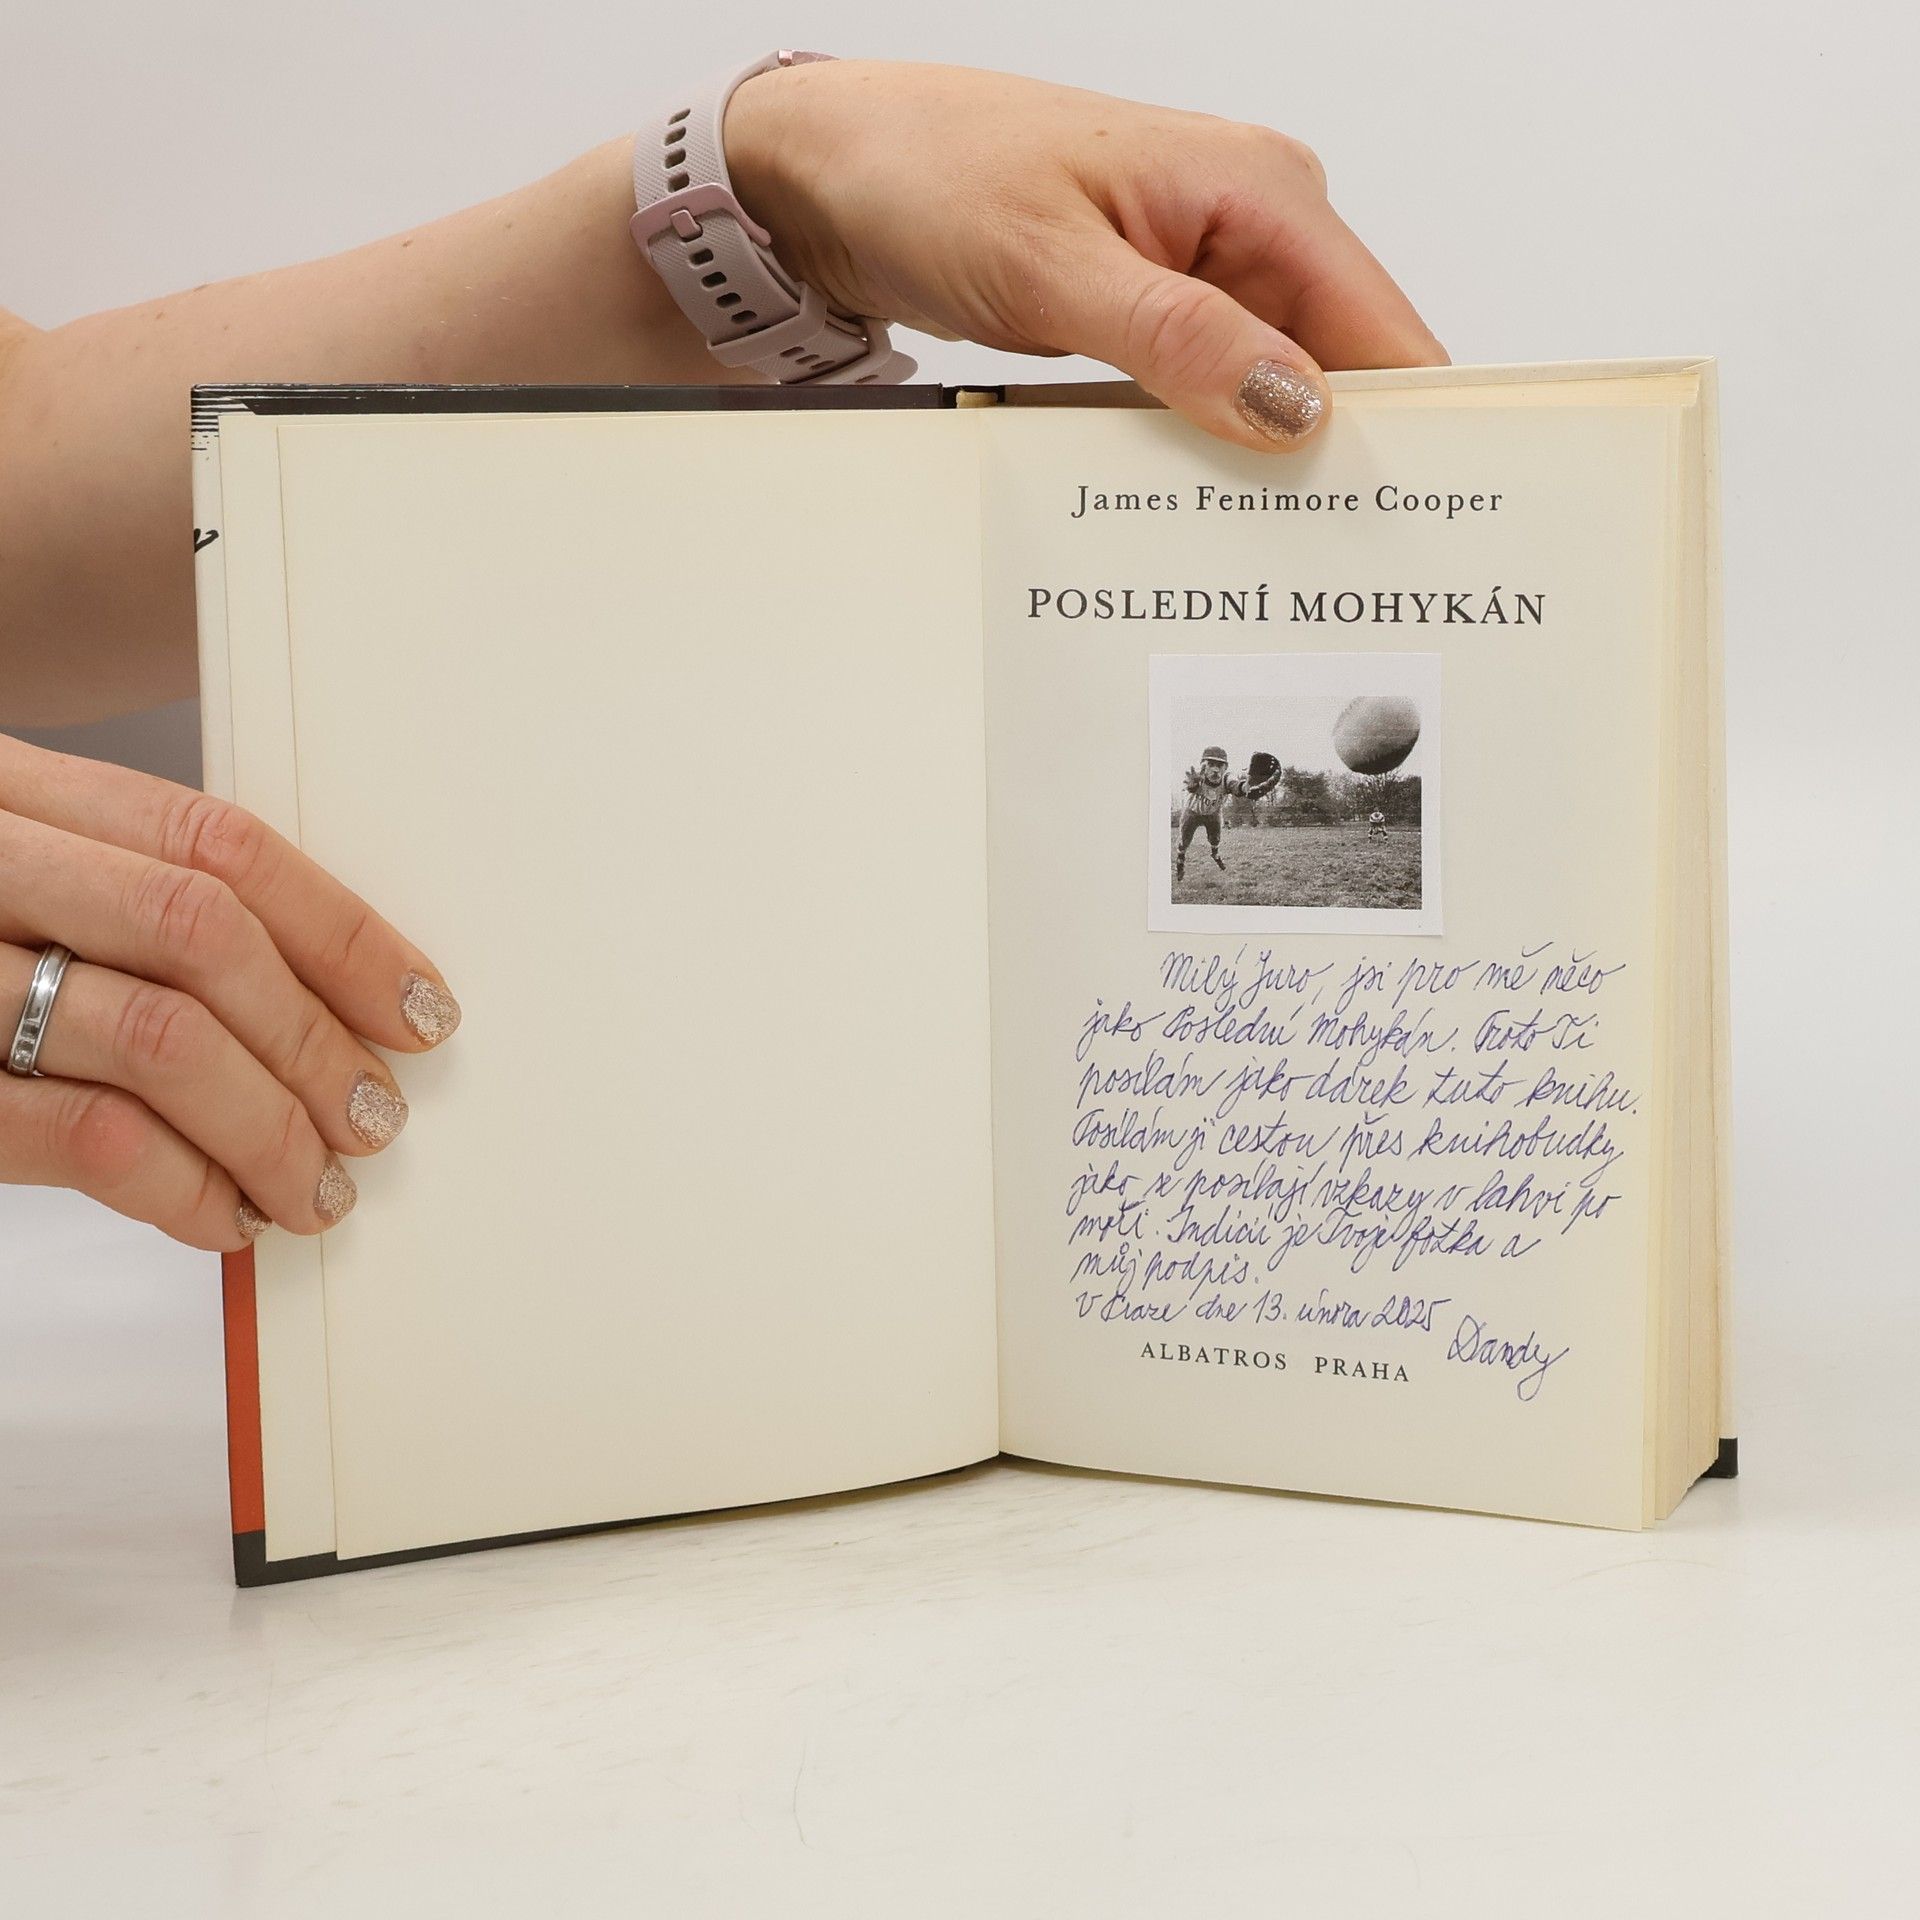 James Fenimore Cooper
POSLEDNÍ MOHYKÁN
Milý Juro, jsi pro mě něco
jako Poslední Mohykán. Proto Ti
posílám jako dárek tuto knihu.
Posílám ji cestou přes knihobudky
jako se posílají vzkazy v lahvi po
moři. Indicií je Tvoje fotka a
můj podpis.
V Praze dne 13. února 2025
Dandy
ALBATROS PRAHA